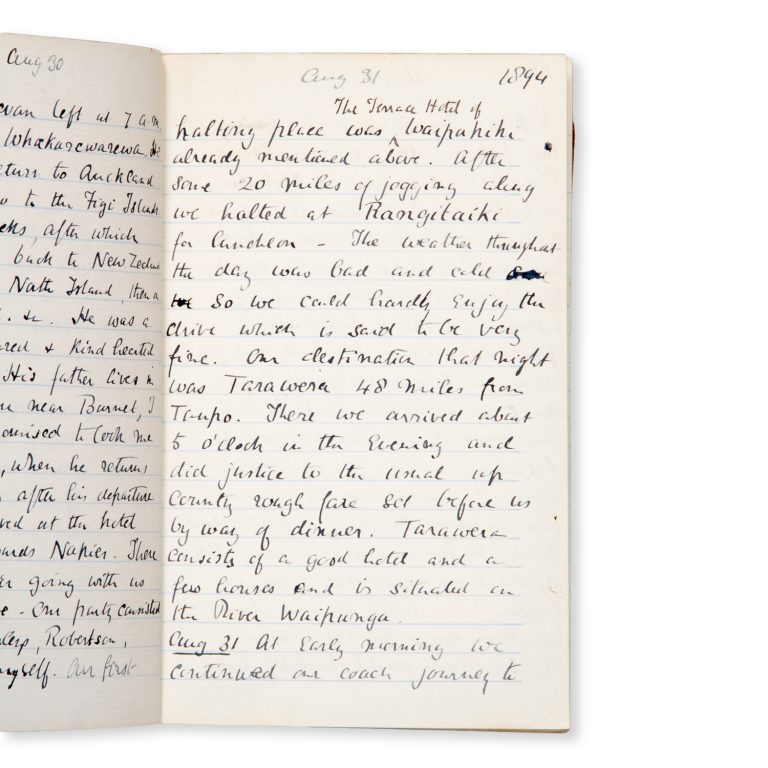 Aug 30
left at 7 a.m.
Whakarewarewa. He
return to Auckland
to the Figi Islands
after which
back to New Zealand
North Island, then a
&c. He was a
& kind hearted
His father lives in
near Barnet, I
promised to look me
, when he returns
after his departure
at the hotel
towards Napier. There
going with us
- Our party consisted
Robertson,
myself. Our first
Aug 31 1894
The Terrace Hotel of
halting place was ^ Waipahihi
already mentioned above. After
some 20 miles of jogging along
we halted at Rangitaiki
for luncheon - The weather throughout
the day was bad and cold
so we could hardly enjoy the
drive which is said to be very
fine. Our destination that night
was Tarawera 48 miles from
Taupo. There we arrived about
5 o'clock in the Evening and
did justice to the usual up
country rough fare set before us
by way of dinner. Tarawera
consists of a good hotel and a
few houses and is situated on
the River Waipunga.
Aug 31 At Early morning we
continued our coach journey to